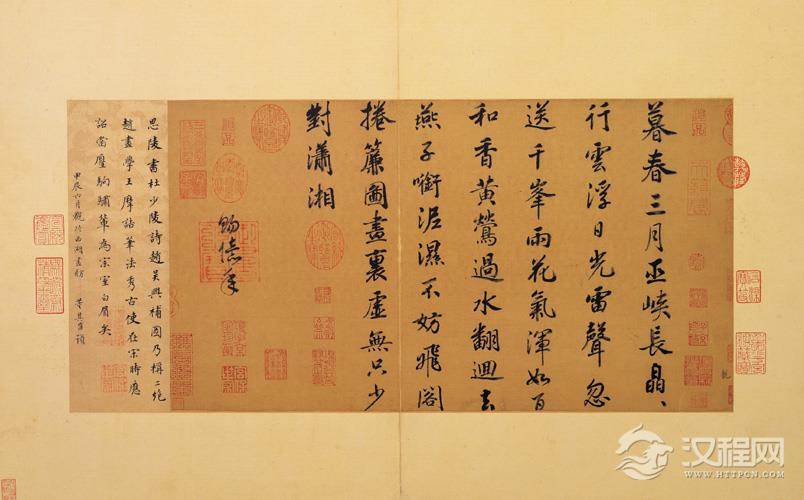 暮春三月巫峽長晶、
行雲浮日光雷聲忽
送千峯雨花氣渾如百
和香黃鶯過水翻迴去
燕子銜泥濕不妨飛閣
捲簾圖畫裏虛無只少
對瀟湘
賜億年
思陵書杜少陵詩趙吳興補圖乃稱二絕
趙畫學王摩詰筆法考古使在宋時應
詔當壓駒驌輩為宗室白眉矣
甲辰六月觀於西湖畫舫 董其昌題
汉程网
WWW.HTTPCN.COM